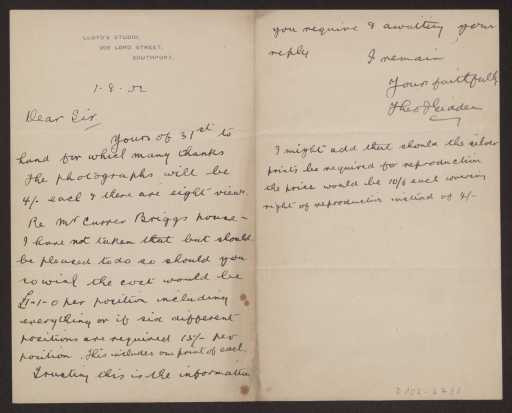 LLOYD'S STUDIO,
LORD STREET,
SOUTHPORT.
Dear Sir
Yours of 31st to
hand for which many thanks
The photographs will be
4/- each & there are eight views.
Re Mr Currer Briggs house -
I have not taken that but should
be pleased to do so should you
so wish the cost would be
£1-1-0 per position including
everything or if six different
positions are required 15/- per
position. This includes one print of each.
Trusting this is the information
you require & awaiting your
reply
I remain
Yours faithfully
I might add that should the silver
prints be required for reproduction
the price would be 10/6 each covering
right of reproduction instead of 4/-